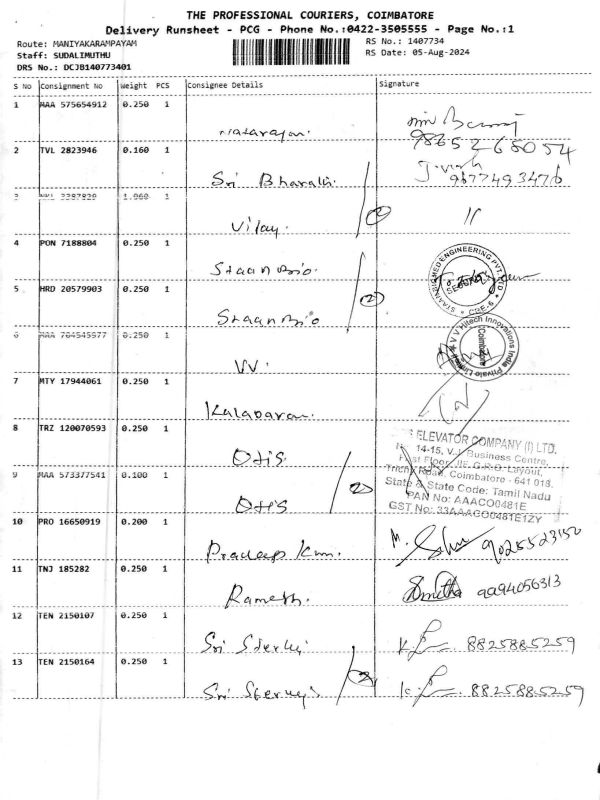 THE PROFESSIONAL COURIERS, COIMBATORE
Delivery Runsheet - PCG - Phone No.:0422-3505555 - Page No.:1
Route: MANIYAKARAMPAYAM
RS No.: 1407734
Staff: SUDALIMUTHU
RS Date: 05-Aug-2024
DRS No.: DCJB140773401
S No Consignment No Weight PCS Consignee Details Signature
1 MAA 575654912 0.250 1
Natarajan.
98652 68054
2 TVL 2823946 0.160 1
Sri Bharathi.
9677493476
3 2287829 1.060 1
Vijay. 2 11
4 PON 7188804 0.250 1
Staan Bio.
5 HRD 20579903 0.250 1
Staan Bio 2
STAANBIOMED ENGINEERING PVT. LTD
SECURITY
CBE-6
6 MAA 764545977 0.250 1
VV.
V V Hitech Innovations India Private Limited
Coimbatore
7 MTY 17944061 0.250 1
8 TRZ 120070593 0.250 1
Otis
ELEVATOR COMPANY (I) LTD.
14-15, V.J. Business Centre,
First Floor, G.R.D. Layout,
Trichy Road, Coimbatore - 641 018.
State & State Code: Tamil Nadu
PAN No: AAACO0481E
GST No: 33AAACO0481E1ZY
9 MAA 573377541 0.100 1
Otis 2
10 PRO 16650919 0.200 1
Pradeep Kum.
M. 9025523150
11 TNJ 185282 0.250 1
Ramesh.
Smitha 9994056313
12 TEN 2150107 0.250 1
Sri
K. 8825885259
13 TEN 2150164 0.250 1
Sri 2
K. 8825885259